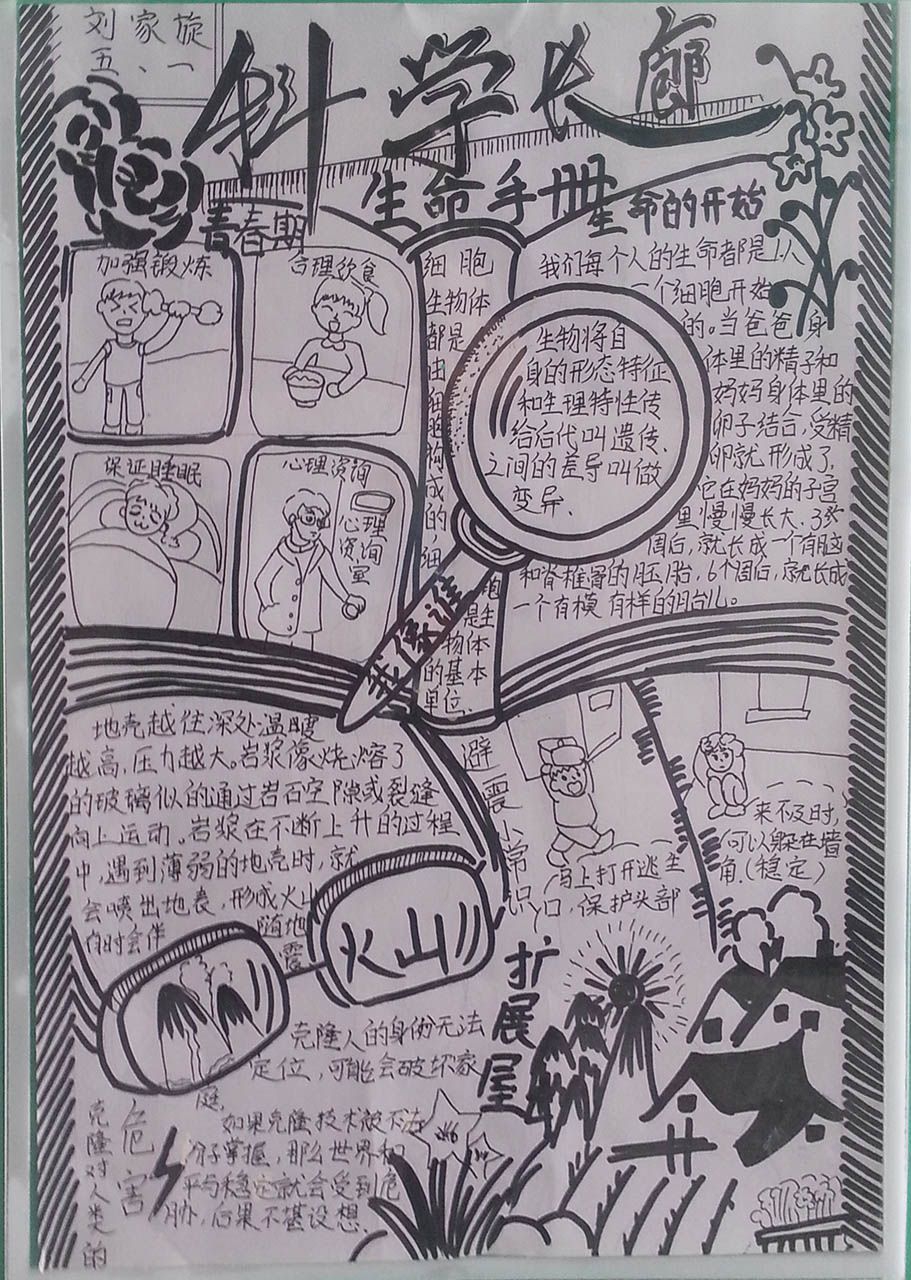 刘家旋
五、一
科学长廊
生命手册
青春期
加强锻炼
合理饮食
保证睡眠
心理资询
心理
资询
室
细胞
生物体
都是
由
细胞
构
成的
，细
胞
是生
物体
的基本
单位.
我像谁
生物将自
身的形态特征
和生理特性传
给后代叫遗传.
之间的差异叫做
变异.
生命的开始
我们每个人的生命都是从
一个细胞开始
的。当爸爸身
体里的精子和
妈妈身体里的
卵子结合，受精
卵就形成了，
它在妈妈的子宫
里慢慢长大.3
周后，就长成一个有脑
和脊椎骨的胚胎，6个周后，就长成
一个有模有样的胎儿。
地壳越往深处温暖
越高，压力越大。岩浆像烧熔了
的玻璃似的通过岩石空隙或裂缝
向上运动。岩浆在不断上升的过程
中，遇到薄弱的地壳时，就
会喷出地表，形成火山
有时会伴
随地
震
火山
避震小常识
马上打开逃生
口，保护头部
来不及时，
可以躲在墙
角.(稳定)
扩展屋
克隆对人类的
危害
克隆人的身份无法
定位，可能会破坏家
庭.
如果克隆技术被不法
分子掌握，那么世界和
平与稳定就会受到危
胁，后果不堪设想.